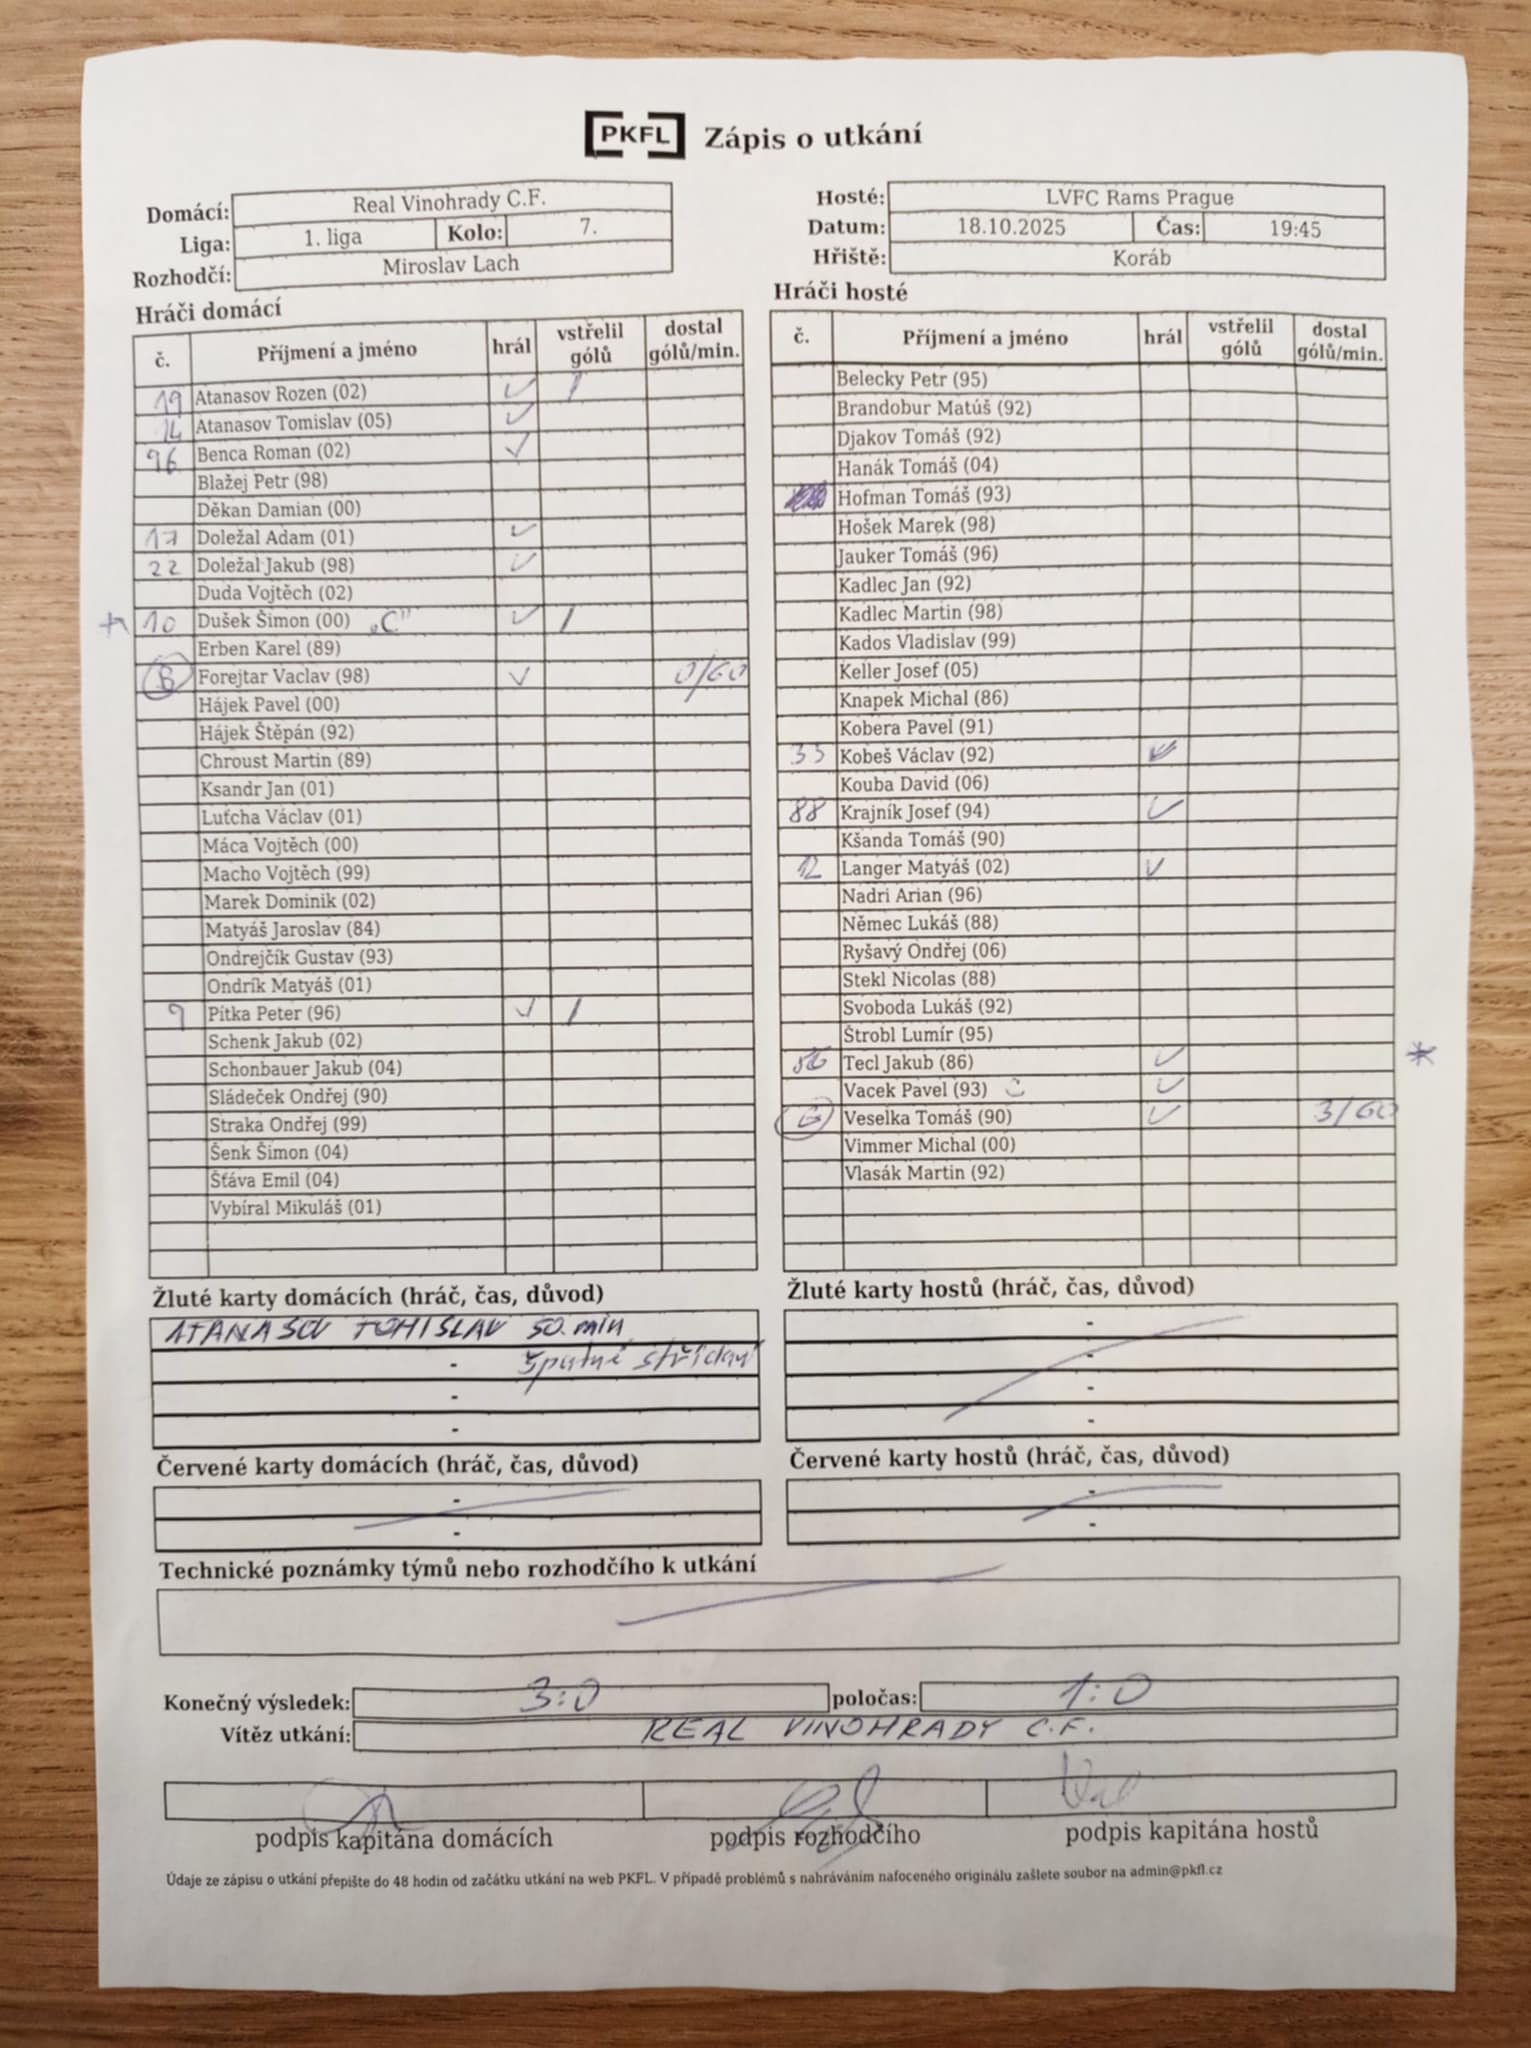 PKFL Zápis o utkání
Domácí: Real Vinohrady C.F.
Liga: 1. liga Kolo: 7.
Rozhodčí: Miroslav Lach
Hosté: LVFC Rams Prague
Datum: 18.10.2025 Čas: 19:45
Hřiště: Koráb
Hráči domácí
č. Příjmení a jméno hrál vstřelil gólů dostal gólů/min.
19 Atanasov Rozen (02) ✓ /
14 Atanasov Tomislav (05) ✓
96 Benca Roman (02) ✓
Blažej Petr (98)
Děkan Damian (00)
17 Doležal Adam (01) ✓
22 Doležal Jakub (98) ✓
Duda Vojtěch (02)
10 Dušek Šimon (00) „C" ✓ /
Erben Karel (89)
Forejtar Vaclav (98) ✓ 0/60
Hájek Pavel (00)
Hájek Štěpán (92)
Chroust Martin (89)
Ksandr Jan (01)
Luťcha Václav (01)
Máca Vojtěch (00)
Macho Vojtěch (99)
Marek Dominik (02)
Matyáš Jaroslav (84)
Ondrejčík Gustav (93)
Ondrík Matyáš (01)
9 Pítka Peter (96) ✓ /
Schenk Jakub (02)
Schonbauer Jakub (04)
Sládeček Ondřej (90)
Straka Ondřej (99)
Šenk Šimon (04)
Šťáva Emil (04)
Vybíral Mikuláš (01)
Hráči hosté
č. Příjmení a jméno hrál vstřelil gólů dostal gólů/min.
Belecky Petr (95)
Brandobur Matúš (92)
Djakov Tomáš (92)
Hanák Tomáš (04)
Hofman Tomáš (93)
Hošek Marek (98)
Jauker Tomáš (96)
Kadlec Jan (92)
Kadlec Martin (98)
Kados Vladislav (99)
Keller Josef (05)
Knapek Michal (86)
Kobera Pavel (91)
33 Kobeš Václav (92) ✓
Kouba David (06)
88 Krajník Josef (94) ✓
Kšanda Tomáš (90)
12 Langer Matyáš (02) ✓
Nadri Arian (96)
Němec Lukáš (88)
Ryšavý Ondřej (06)
Stekl Nicolas (88)
Svoboda Lukáš (92)
Štrobl Lumír (95)
Tecl Jakub (86) ✓ *
Vacek Pavel (93) C ✓
G Veselka Tomáš (90) ✓ 3/60
Vimmer Michal (00)
Vlasák Martin (92)
Žluté karty domácích (hráč, čas, důvod)
ATANASOV TOMISLAV 50. min
- špatné střídání
-
-
Žluté karty hostů (hráč, čas, důvod)
-
-
-
-
Červené karty domácích (hráč, čas, důvod)
-
-
Červené karty hostů (hráč, čas, důvod)
-
-
Technické poznámky týmů nebo rozhodčího k utkání
Konečný výsledek: 3:0 poločas: 1:0
Vítěz utkání: REAL VINOHRADY C.F.
podpis kapitána domácích podpis rozhodčího podpis kapitána hostů
Údaje ze zápisu o utkání přepište do 48 hodin od začátku utkání na web PKFL. V případě problémů s nahráváním nafoceného originálu zašlete soubor na admin@pkfl.cz